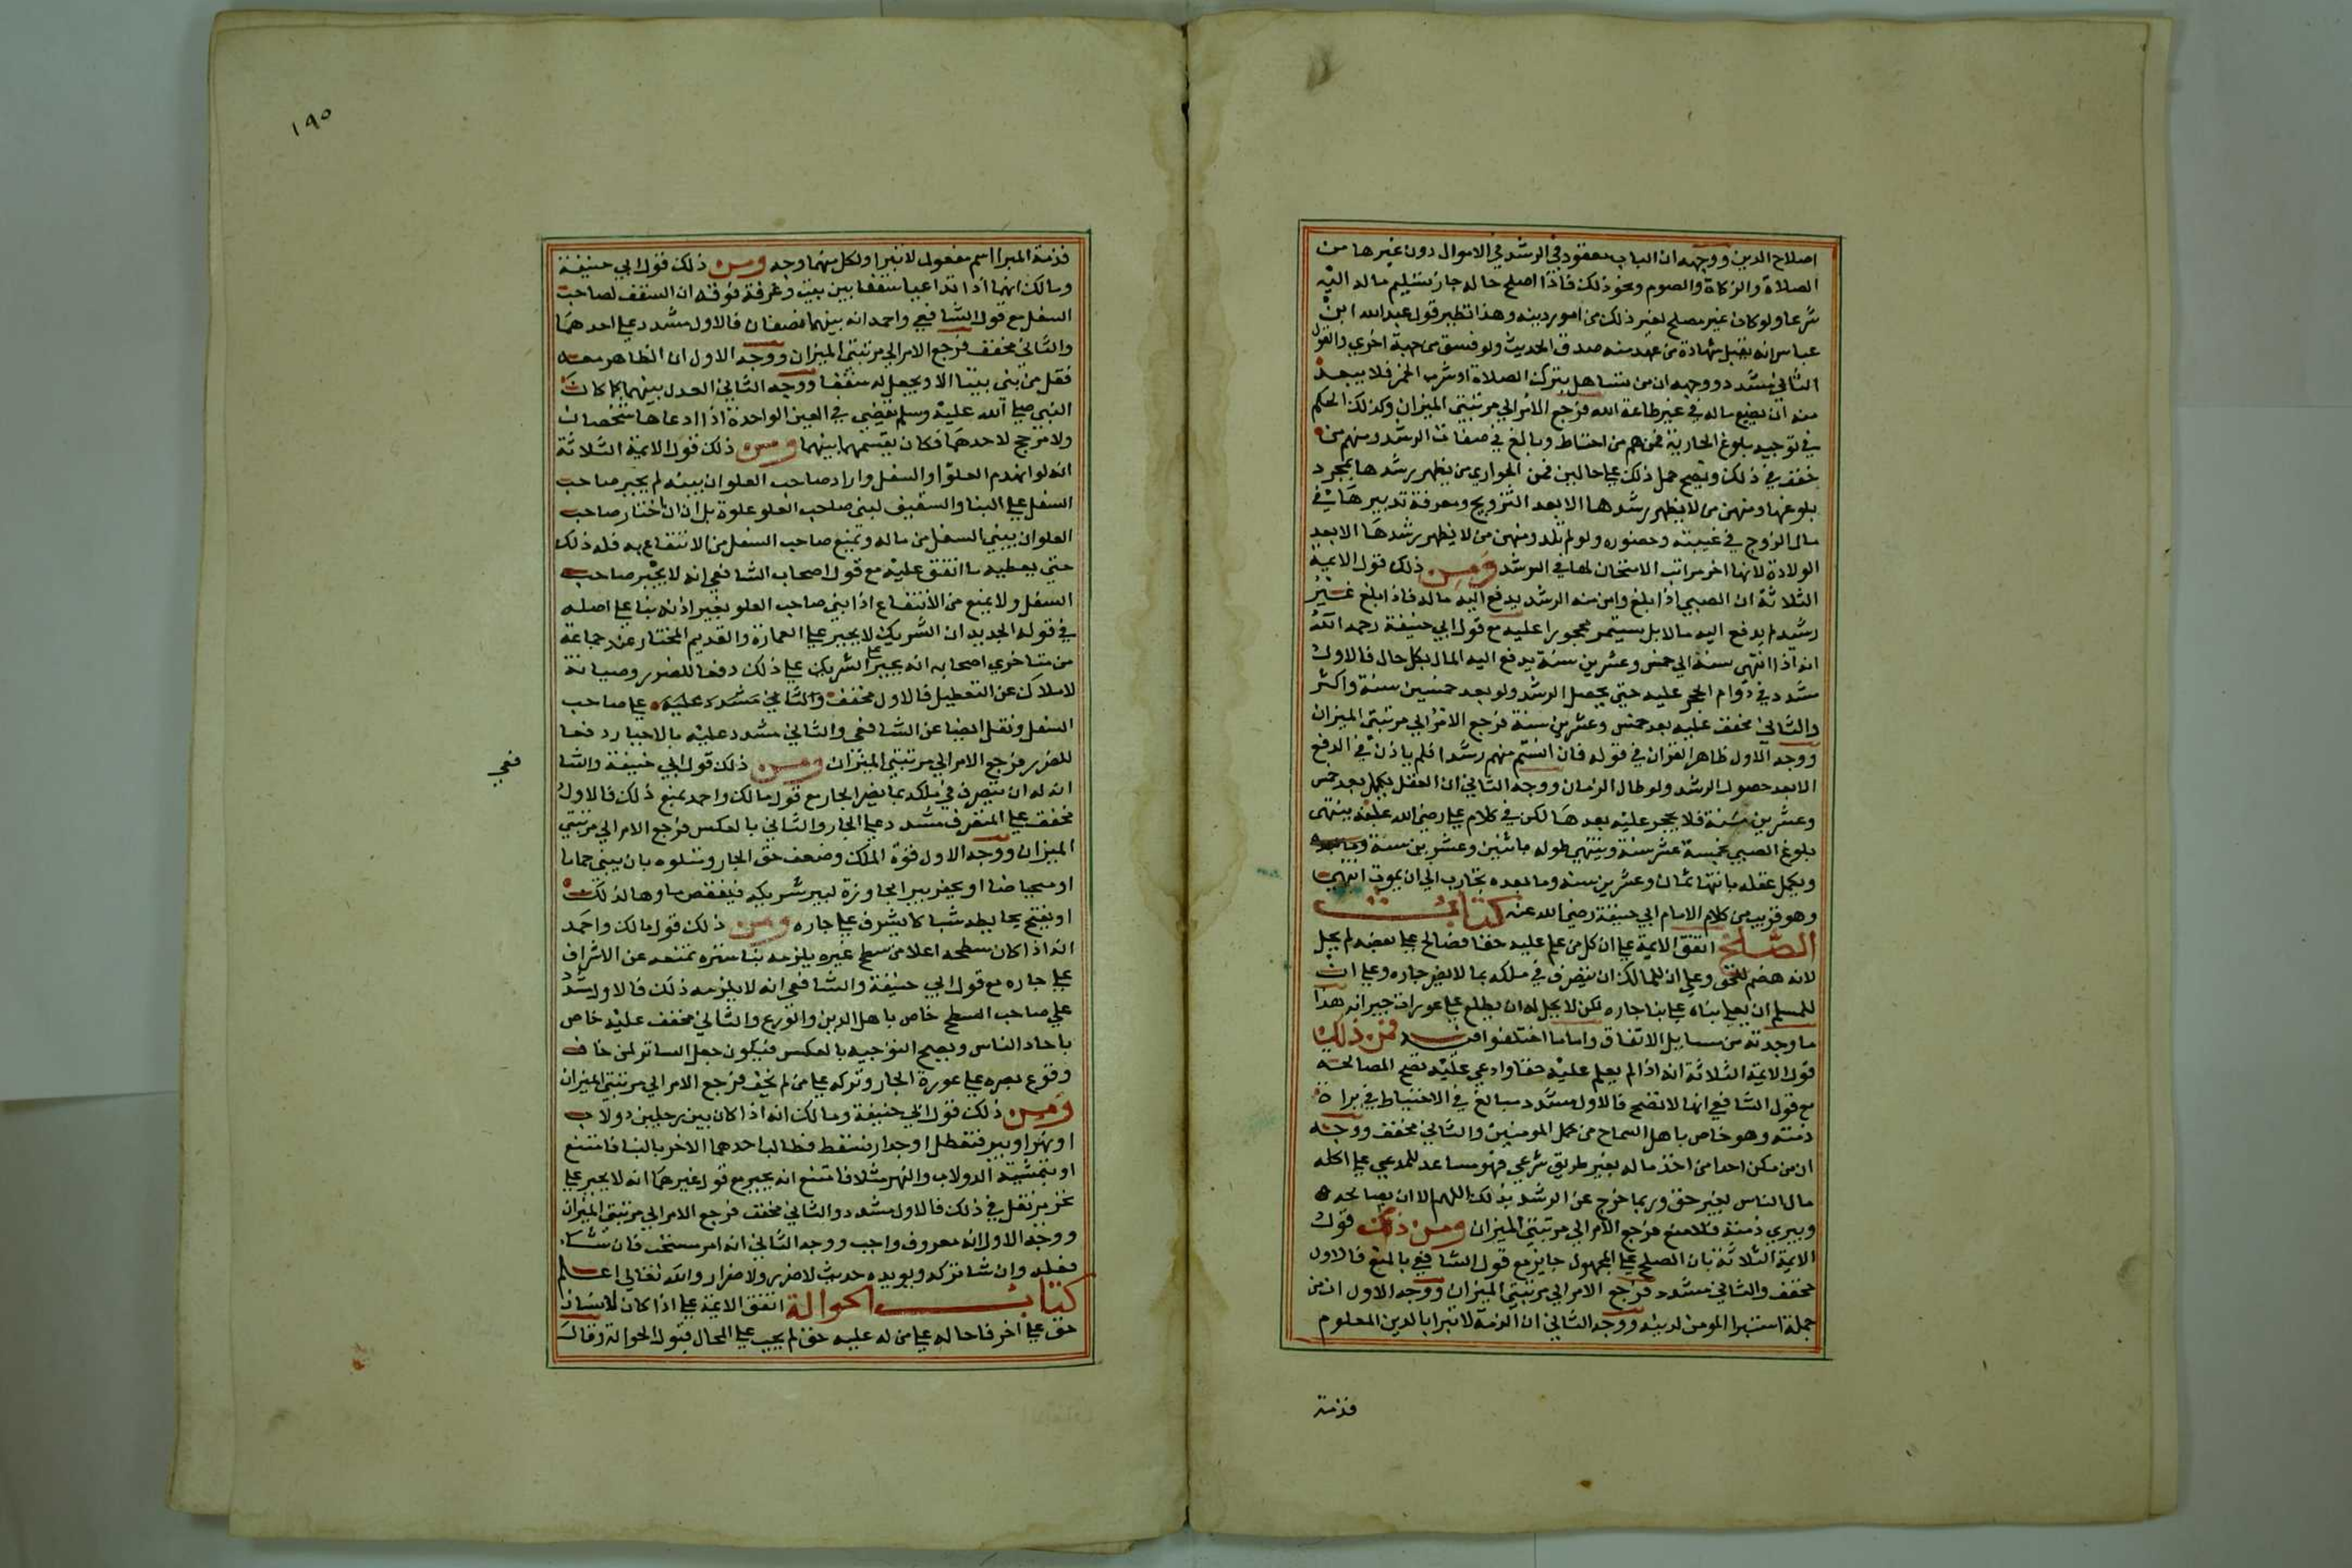 اصلاح الدين ووجهه ان الباب معقود في الرشد في الاموال دون غيرها من
الصلاة والزكاة والصوم ونحو ذلك فاذا اصلح حاله جاز تسليم ماله اليه
شرعا ولو كان غير مصلح لغير ذلك من امور دينه وهذا نظير قول عبد الله ابن
عباس انه تقبل شهادة من عهد منه صدق الحديث ولو فسق من جهة اخري والقول
الثاني مشدد ووجهه ان من تساهل بترك الصلاة او شرب الخمر فلا يبعد
منه ان يضيع ماله في غير طاعة الله فرجع الامر الي مرتبتي الميزان وكذلك الحكم
في توجيه بلوغ الجارية فمنهم من احتاط وبالغ في صفات الرشد ومنهم من
خفف في ذلك ويصح حمل ذلك علي حالين فمن الجواري من يظهر رشدها بمجرد
بلوغها ومنهن من لا يظهر رشدها الا بعد التزويج ومعرفة تدبيرها في
مال الزوج في غيبته وحضوره ولو لم تلد ومنهن من لا يظهر رشدها الا بعد
الولادة لانها اخر مراتب الامتحان لها في الرشد ومن ذلك قول الايمة
الثلاثة ان الصبي اذا بلغ وانس منه الرشد يدفع اليه ماله فاذا بلغ غير
رشيد لم يدفع اليه ماله بل يستمر محجورا عليه مع قول ابي حنيفة رحمه الله
انه اذا انتهي سنه الي خمس وعشرين سنة يدفع اليه المال بكل حال فالاول
مشدد في دوام الحجر عليه حتي يحصل الرشد ولو بعد خمسين سنة واكثر
والثاني مخفف عليه بعد خمس وعشرين سنة فرجع الامر الي مرتبتي الميزان
ووجه الاول ظاهر القران في قوله فان انستم منهم رشدا فلم ياذن في الدفع
الا بعد حصول الرشد ولو طال الزمان ووجه الثاني ان العقل يكمل بعد خمس
وعشرين سنة فلا يحجر عليه بعدها لكن في كلام علي رضي الله عنه ينتهي
بلوغ الصبي بخمسة عشر سنة وينتهي طوله باثنين وعشرين سنة
ويكمل عقله بانتها ثمان وعشرين سنه وما بعده تجارب الي ان يموت انتهي
وهو قريب من كلام الامام ابي حنيفة رضي الله عنه كتاب
الصلح اتفق الايمة علي ان كل من علم عليه حقا فصالح علي بعضه لم يحل
لانه هضم للحق وعلي ان للمالك ان يتصرف في ملكه بما لا يضر جاره وعلي ان
للمسلم ان يعلي بناه علي بنا جاره لكن لا يحل له ان يطلع علي عورات جيرانه هذا
ما وجدته من مسايل الاتفاق واما ما اختلفوا فيه فمن ذلك
قول الايمة الثلاثة انه اذا لم يعلم عليه حقا وادعي عليه تصح المصالحة
مع قول الشافعي انها لا تصح فالاول مشدد مبالغ في الاحتياط في براة
ذمته وهو خاص باهل السماح من كمل المومنين والثاني مخفف ووجهه
ان من مكن احدا من اخذ ماله بغير طريق شرعي فهو مساعد للمدعي علي اكله
مال الناس بغير حق وربما خرج عن الرشد بذلك اللهم الا ان يصالحه
ويبري ذمته فلا منع فرجع الامر الي مرتبتي الميزان ومن ذلك قول
الايمة الثلاثة بان الصلح علي المجهول جايز مع قول الشافعي بالمنع فالاول
مخفف والثاني مشدد فرجع الامر الي مرتبتي الميزان ووجه الاول ان من
جملة استبرا المومن لدينه ووجه الثاني ان الذمة لا تبرا بالدين المعلوم
فذمة
١٩٥
فذمة المبرا اسم مفعول لا تبرا ولكل منهما وجه ومن ذلك قول ابي حنيفة
ومالك انهما اذا تداعيا سقفا بين بيت وغرفة فوقه ان السقف لصاحب
السفل مع قول الشافعي واحمد انه بينهما نصفان فالاول مشدد علي احدهما
والثاني مخفف فرجع الامر الي مرتبتي الميزان ووجه الاول ان الظاهر معه
فقل من بني بيتا الا ويجعل له سقفا ووجه الثاني العدل بينهما كما كان
النبي صلي الله عليه وسلم يقضي في العين الواحدة اذا ادعاها شخصان
ولا مرجح لاحدهما فكان يقسمها بينهما ومن ذلك قول الايمة الثلاثة
انه لو انهدم العلو او السفل واراد صاحب العلو ان يبنيه لم يجبر صاحب
السفل علي البنا والسقيف ليبني صاحب العلو علوه بل ان اختار صاحب
العلو ان يبني السفل من ماله ويمنع صاحب السفل من الانتفاع به فله ذلك
حتي يعطيه ما انفق عليه مع قول اصحاب الشافعي انه لا يجبر صاحب
السفل ولا يمنع من الانتفاع اذا بني صاحب العلو بغير اذنه بنا علي اصله
في قوله الجديد ان الشريك لا يجبر علي العمارة والقديم المختار عند جماعة
من متاخري اصحابه انه يجبر الشريك علي ذلك دفعا للضرر وصيانة
للاملاك عن التعطيل فالاول مخفف والثاني مشدد عليه علي صاحب
السفل ونقل ايضا عن الشافعي والثاني مشدد عليه بالاجبار دفعا
للضرر فرجع الامر الي مرتبتي الميزان ومن ذلك قول ابي حنيفة والشا
فعي
ان له ان يتصرف في ملكه بما يضر الجار مع قول مالك واحمد بمنع ذلك فالاول
مخفف علي المتصرف مشدد علي الجار والثاني بالعكس فرجع الامر الي مرتبتي
الميزان ووجه الاول قوة الملك وضعف حق الجار ومثلوه بان يبني حماما
او ميحاضا او يحفر بير المجاورة لبير شريكه فينقص ماوها لذلك
او يفتح بحايطه شباكا يشرف علي جاره ومن ذلك قول مالك واحمد
انه اذا كان سطحه اعلا من سطح غيره يلزمه بنا سترة تمنعه عن الاشراف
علي جاره مع قول ابي حنيفة والشافعي انه لا يلزمه ذلك فالاول مشدد
علي صاحب السطح خاص باهل الدين والورع والثاني مخفف عليه خاص
باحاد الناس ويصح التوجيه بالعكس فيكون جعل الساتر لمن خاف
وقوع بصره علي عورة الجار وتركه علي من لم يخف فرجع الامر الي مرتبتي الميزان
ومن ذلك قول ابي حنيفة ومالك انه اذا كان بين رجلين دولاب
او نهر او بير فتعطل او جدار فسقط فطالب احدهما الاخر بالبنا فامتنع
او بتمشية الدولاب والنهر مثلا فامتنع انه يجبر مع قول غيرهما انه لا يجبر علي
ذلك فالاول مشدد والثاني مخفف فرجع الامر الي مرتبتي الميزان
ووجه الاول انه معروف واجب ووجه الثاني انه امر مستحب فان شاء
فعله وان شا تركه ويويده حديث لا ضرر ولا ضرار والله تعالي اعلم
كتاب الحوالة اتفق الايمة علي اذا كان لانسان
حق علي اخر فاحاله علي من له عليه حق لم يجب علي المحال قبول الحوالة وقال